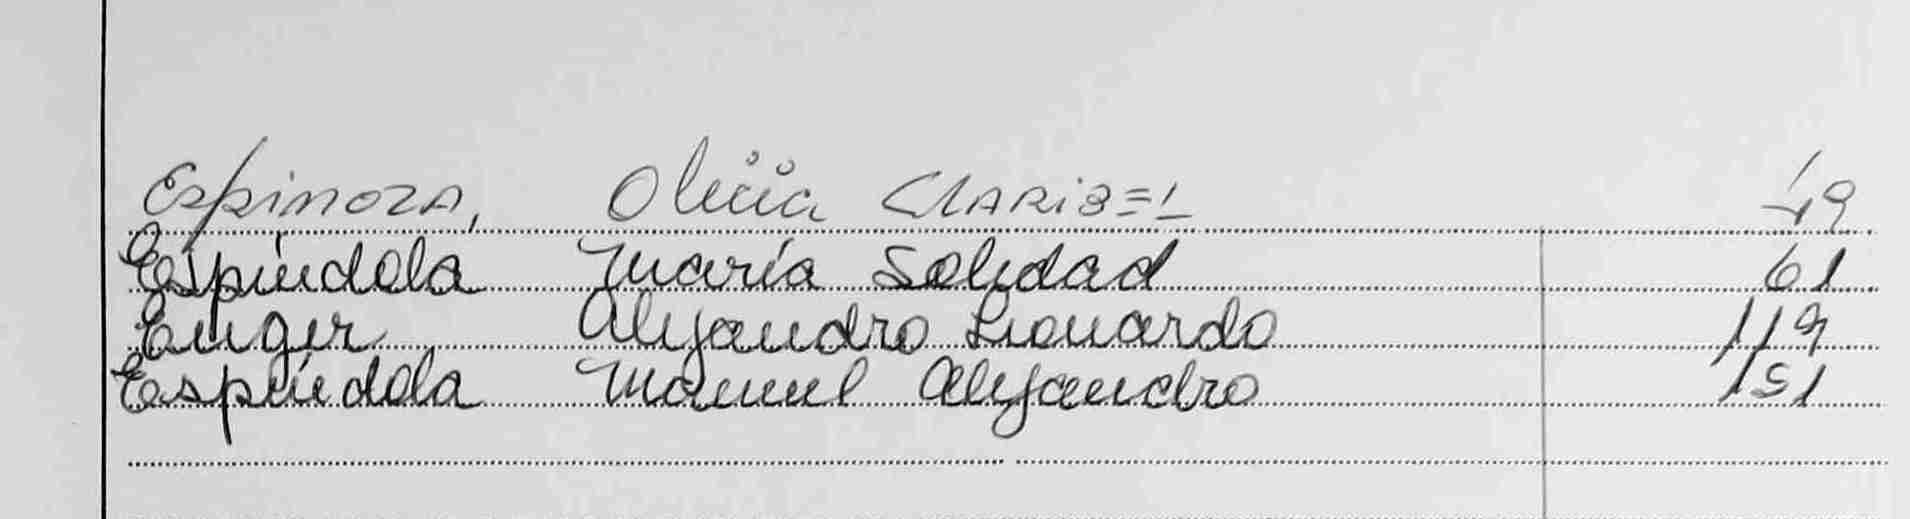 Espinoza, Olivia Claribel 49
Espíndola María Soledad 61
Enger Alejandro Leonardo 119
Espíndola Manuel Alejandro 151